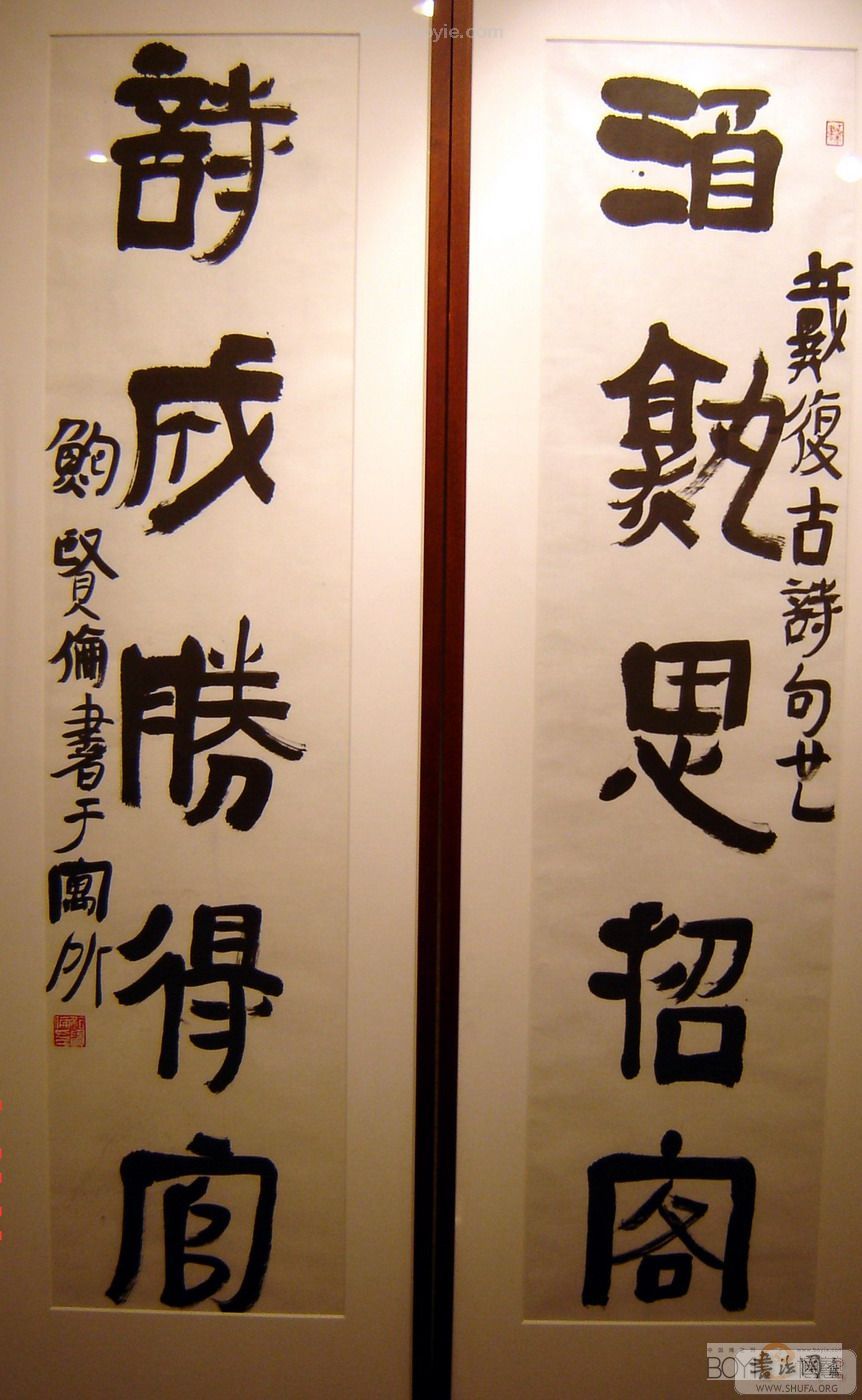 酒熟思招客
戴復古詩句也
詩成勝得官
鮑賢倫書于寓所
oyie.com
BOY
書法國
WWW.SHUFA.ORG